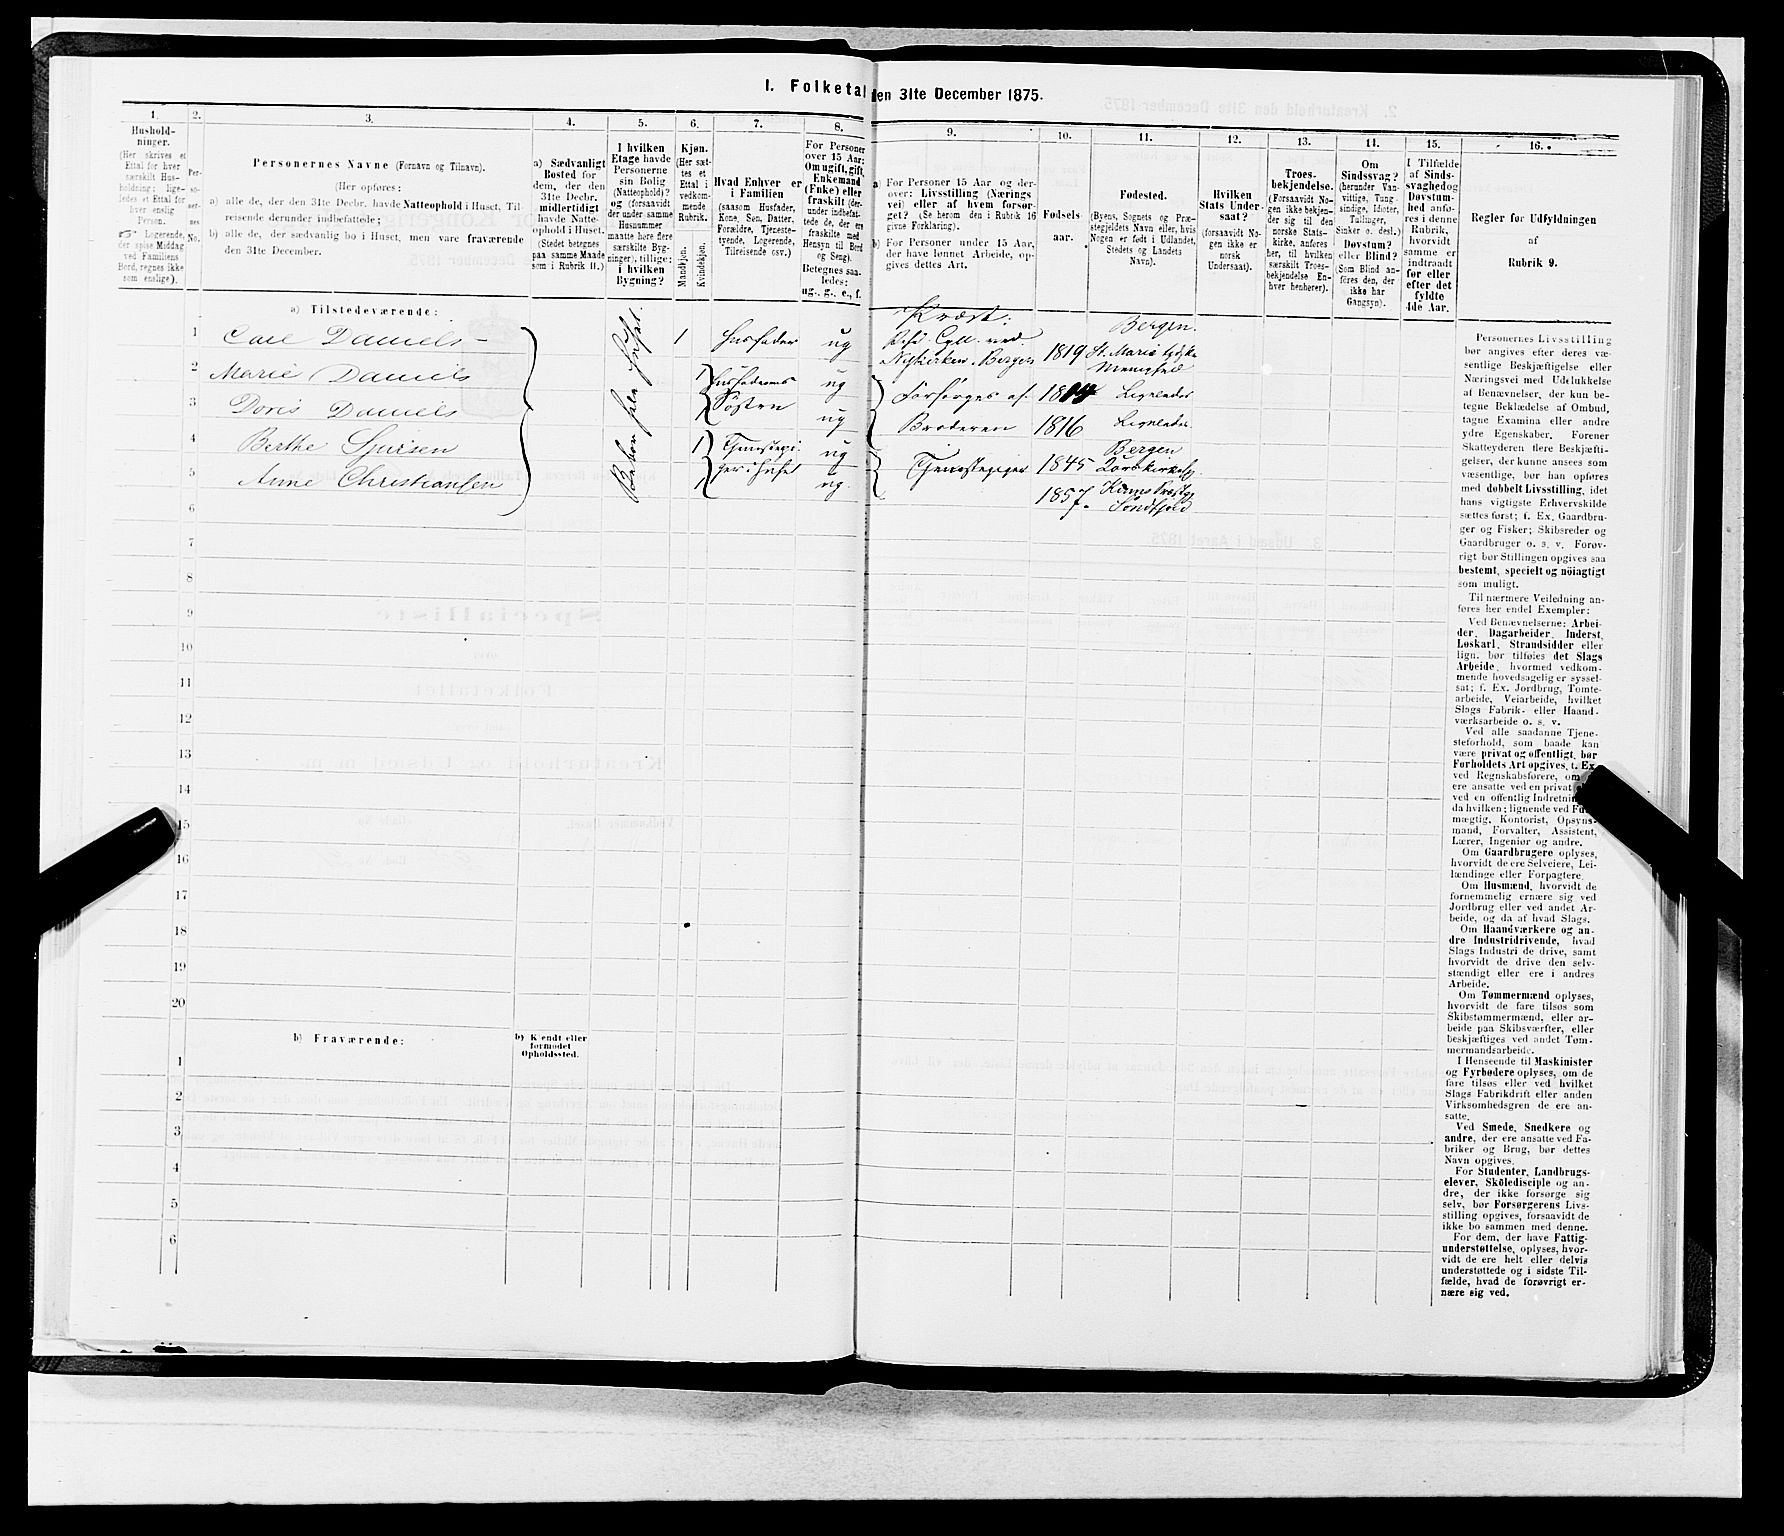 1. Folketal den 31te December 1875.
1.
Hushold-
ninger.
(Her skrives et
Ettal for hver
særskilt Hus-
holdning; lige-
ledes et Ettal for
hver enslig
Person.
Logerende,
der spise Middag
ved Familiens
Bord, regnes ikke
som enslige).
2.
Per-
so-
ner-
nes
No.
3.
Personernes Navne (Fornavn og Tilnavn).
(Her opføres:
a) alle de, der den 31te Decbr. havde Natteophold i Huset, Til-
reisende derunder indbefattede;
b) alle de, der sædvanlig bo i Huset, men vare fraværende
den 31te December.
4.
a) Sædvanligt
Bosted for
dem, der den
31te Decbr.
midlertidigt
havde Natte-
ophold i Huset.
(Stedet betegnes
paa samme Maade
som i Rubrik 11.)
5.
I hvilken
Etage havde
Personerne
sin Bolig
(Natteophold)?
og (forsaavidt
der under samme
Husnummer
maatte høre flere
særskilte Byg-
ninger), tillige:
i hvilken
Bygning?
6.
Kjøn.
(Her sæt-
tes et
Ettal i
vedkom-
mende
Rubrik.
Mandkjøn.
Kvindekjøn.
7.
Hvad Enhver er
i Familien
(saasom Husfader,
Kone, Søn, Datter,
Forældre, Tjeneste-
tyende, Logerende,
Tilreisende osv.)
8.
For Personer
over 15 Aar:
Om ugift, gift,
Enkemand
(Enke) eller
fraskilt (der-
under indbefat-
tede de, der ere
fraskilte med
Hensyn til Bord
og Seng).
Betegnes saa-
ledes:
ug., g., e., f.
9.
a) For Personer 15 Aar og der-
over: Livsstilling (Nærings
vei) eller af hvem forsør-
get? (Se herom den i Rubrik 16
givne Forklaring).
b) For Personer under 15 Aar,
der have lønnet Arbeide, op-
gives dettes Art.
10.
Fødsels-
aar.
11.
Fødested.
(Byens, Sognets og Præ-
stegjeldets Navn eller, hvis
Nogen er født i Udlandet,
Stedets og Landets
Navn).
12.
Hvilken
Stats Under-
saat?
(forsaavidt No-
gen ikke er
norsk
Undersaat).
13.
Troes-
bekjendelse.
(Forsaavidt No-
gen ikke bekjen-
der sig til den
norske Stats-
kirke, anføres
her, til hvilken
særskilt Troes-
bekjendelse En-
hver henhører).
14.
Om
Sindssvag?
(herunder Van-
vittige, Tung-
sindige, Idioter,
Tullinger,
Sinker o. desl.)
Døvstum?
eller Blind?
(Som Blind an-
føres den, der
ikke har
Gangsyn).
15.
I Tilfælde
af Sinds-
svaghedog
Døvstum-
hed anfø-
res i denne
Rubrik,
hvorvidt
samme er
indtraadt
før eller
efter det
fyldte
4de Aar.
16.
Regler for Udfyldningen
af
Rubrik 9.
a) Tilstedeværende:
1 Carl Daniels 1 Husfader ug 1819 Bergen. St. Mariæ tydske Menighed
2 Marie Daniels 1 Husfaderens ug Forsørges af Ligeledes
3 Doris Daniels 1 Søstre ug Broderen 1816 Ligeledes.
4 Berthe 1 Tjenestepi- ug Tjenestepiger 1845 Bergen
5 Anne Christiansen 1 ger i Huset ug. 1857. Kinns Præstgj Søndfjord
Beboer hele Huset.
6
7
8
9
10
11
12
13
14
15
16
17
18
19
20
b) Fraværende:
b) Kjendt eller
formodet
Opholdssted.
1
2
3
4
5
6
Personernes Livsstilling
bør angives efter deres væ-
sentlige Beskjæftigelse eller
Næringsvei med Udelukkelse
af Benævnelser, der kun be-
tegne Beklædelse af Ombud,
tagne Examina eller andre
ydre Egenskaber. Forener
Skatteyderen flere Beskjæfti-
gelser, der kunne ansees som
væsentlige, bør han opføres
med dobbelt Livsstilling, idet
hans vigtigste Erhvervskilde
sættes først; f. Ex. Gaardbru-
ger og Fisker; Skibsreder og
Gaardbruger o. s. v. Forøv-
rigt bør Stillingen opgives saa
bestemt, specielt og nöiagtigt
som muligt.
Til nærmere Veiledning an-
føres her endel Exempler:
Ved Benævnelserne: Arbei-
der, Dagarbeider, Inderst,
Løskarl, Strandsidder eller
lign. bør tilføies det Slags
Arbeide, hvormed vedkom-
mende hovedsagelig er syssel-
sat; f. Ex. Jordbrug, Tomte-
arbeide, Veiarbeide, hvilket
Slags Fabrik- eller Haand-
værksarbeide o. s. v.
Ved alle saadanne Tjene-
steforhold, som baade kan
være privat og offentligt, bør
Forholdets Art opgives, t. Ex.
ved Regnskabsførere, om
ere ansatte ved en privat
ved en offentlig Indretnin
da hvilken; lignende ved Fuld-
mægtig, Kontorist, Opsyns-
mand, Forvalter, Assistent,
Lærer, Ingeniør og andre.
Om Gaardbrugere oplyses,
hvorvidt de ere Selveiere, Lei-
lændinge eller Forpagtere.
Om Husmænd, hvorvidt de
fornemmelig ernære sig ved
Jordbrug eller ved andet Ar-
beide, og da af hvad Slags.
Om Haandværkere og an-
dre Industridrivende, hvad
Slags Industri de drive, samt
hvorvidt de drive den selv-
stændigt eller ere i andres
Arbeide.
Om Tømmermænd oplyses,
hvorvidt de fare tilsøs som
Skibstømmermænd, eller ar-
beide paa Skibsværfter, eller
beskjæftiges ved andet Tøm-
mermandsarbeide.
I Henseende til Maskinister
og Fyrbødere oplyses, om de
fare tilsøs eller ved hvilket
Slags Fabrikdrift eller anden
Virksomhedsgren de ere an-
satte.
Ved Smede, Snedkere og
andre, der ere ansatte ved Fa-
briker og Brug, bør dettes
Navn opgives.
For Studenter, Landbrugs-
elever, Skoledisciple og an-
dre, der ikke forsørge sig
selv, bør Forsørgerens Livs-
stilling opgives, forsaavidt de
ikke bo sammen med denne.
For dem, der have Fattig-
understøttelse, oplyses, hvor-
vidt de ere helt eller delvis
understøttede og i sidste Til-
fælde, hvad de forøvrigt er-
nære sig ved.